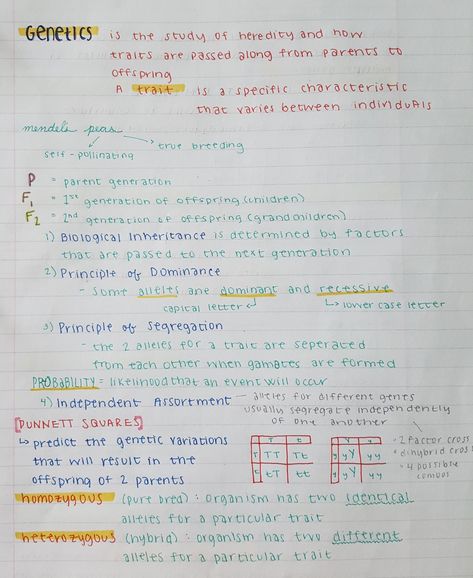 Genetics is the study of heredity and how
traits are passed along from parents to
offspring
A trait is a specific characteristic
that varies between individuals
mendels peas
self-pollinating
true breeding
P = parent generation
F1 = 1st generation of offspring (children)
F2 = 2nd generation of offspring (grandchildren)
1) Biological Inheritance is determined by factors
that are passed to the next generation
2) Principle of Dominance
- some alleles are dominant and recessive
capital letter
lower case letter
3) Principle of Segregation
- the 2 alleles for a trait are seperated
from each other when gametes are formed
PROBABILITY = likelihood that an event will occur
4) Independent Assortment - alleles for different genes
usually segregate independently
of one another
[PUNNETT SQUARES]
↳ predict the genetic variations
that will result in the
offspring of 2 parents
T t
T TT Tt
t tT tt
Y y
y yY yy
y yY yy
• 2 factor cross
• dihybrid cross
• 4 possible
combos
homozygous (pure bred): organism has two identical
alleles for a particular trait
heterozygous (hybrid): organism has two different
alleles for a particular trait